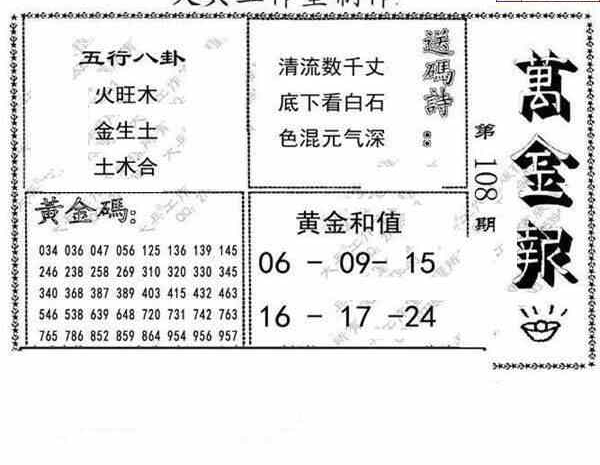 萬金報
第108期
送碼詩：
清流数千丈
底下看白石
色混元气深
五行八卦
火旺木
金生土
土木合
黃金碼:
034 036 047 056 125 136 139 145
246 238 258 269 310 320 330 345
340 368 387 389 403 415 432 463
546 538 639 648 720 731 742 763
765 786 852 859 864 954 956 957
黄金和值
06 - 09- 15
16 - 17 -24